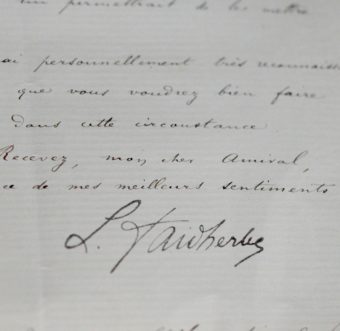 permettrait de les mettre
ai personnellement très reconnaiss
que vous voudrez bien faire
dans cette circonstance.
Recevez, mon cher Amiral,
ce de mes meilleurs sentiments
L. Faidherbe